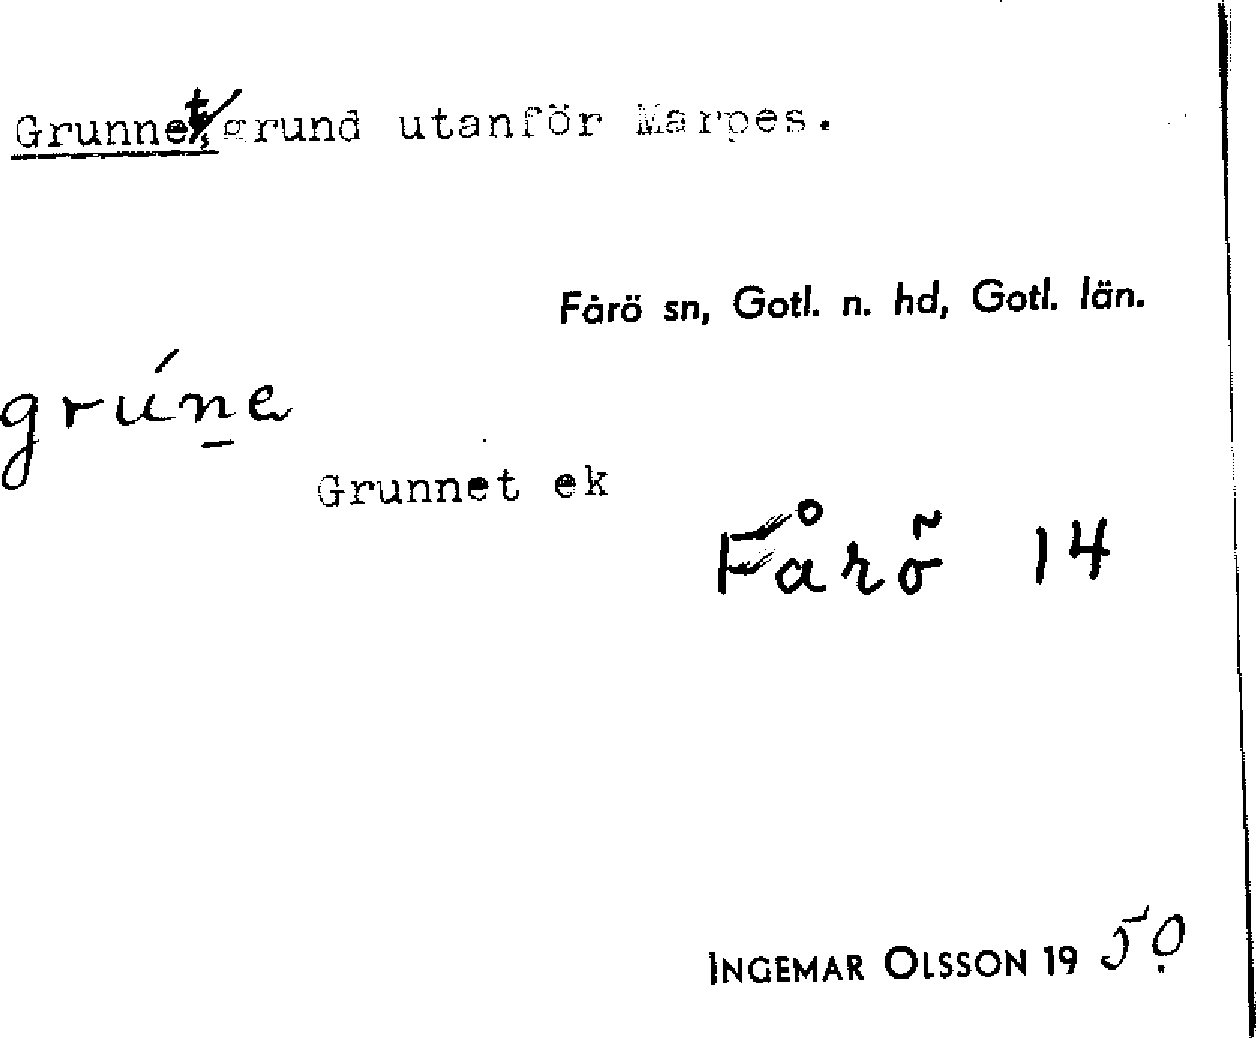 Grunnet, grund utanför Marpes.
Fårö sn, Gotl. n. hd, Gotl. län.
grún̲e
Grunnet ek
Fårö 14
INGEMAR OLSSON 1950